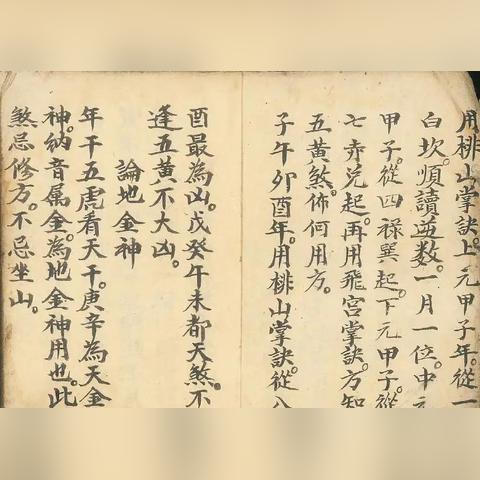 用棑山掌訣。上元甲子年。從一
白坎。順讀逆数。一月一位。中元
甲子。從四禄巽起。下元甲子。從
七赤兊起。再用飛宮掌訣。方知
五黄煞佈何用方。
子午卯酉年。用棑山掌訣。從八
酉最為凶。戊癸午未都天煞。不
逢五黄不大凶。
論地金神
年干五虎看天干。庚辛為天金
神。納音属金。為地金神用也。此
煞忌修方。不忌坐山。